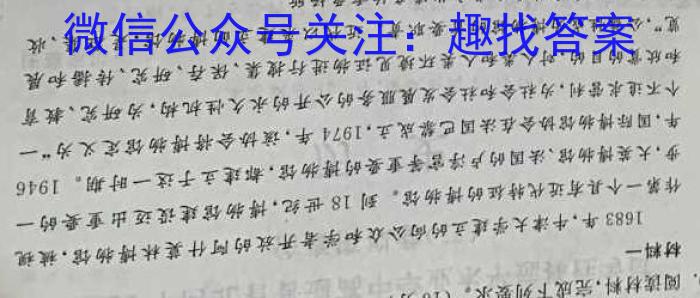 微信公众号关注：趣找答案
阅读材料，完成下列要求。
材料一
1683 年，牛津大学建立的向公众和学者开放的阿什莫林博物馆，被视
作第一个具有近代特征的博物馆。到 18 世纪，博物馆建设迈出重要的一
步，大英博物馆、法国的卢浮宫等重要的博物馆，都建立于这一时期。1946
年，国际博物馆协会在法国巴黎成立，1974 年，该协会将博物馆定义为“一
个不追求营利，为社会和社会发展服务的公开的永久性机构，为研究、教育
和欣赏的目的，对人类和人类环境见证物进行搜集、保存、研究、传播和展
览”，